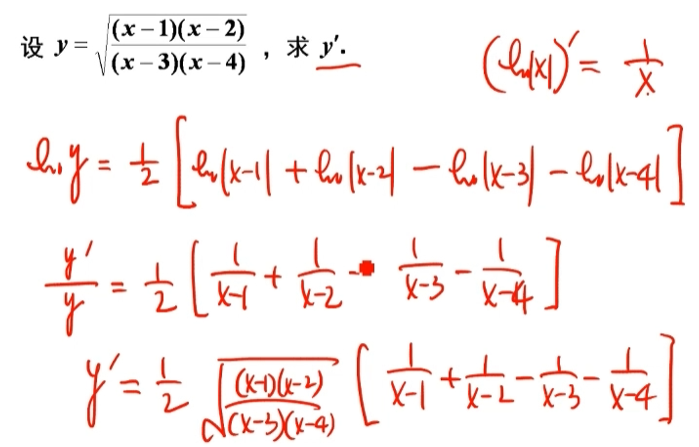 设 y = √((x−1)(x−2)/((x−3)(x−4))) ，求 y′.
(ln|x|)′ = 1/x
ln y = 1/2 [ln|x-1| + ln|x-2| − ln|x-3| − ln|x-4|]
y′/y = 1/2 [1/(x-1) + 1/(x-2) − 1/(x-3) − 1/(x-4)]
y′ = 1/2 √((x-1)(x-2)/((x-3)(x-4))) [1/(x-1) + 1/(x-2) − 1/(x-3) − 1/(x-4)]